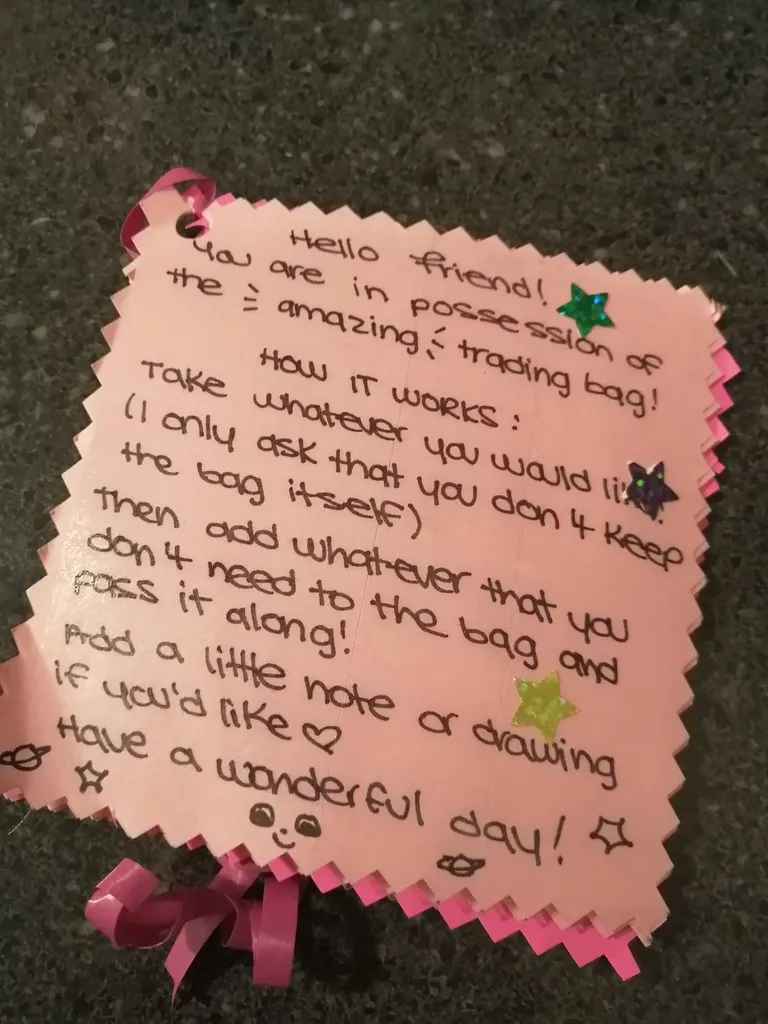 Hello friend!
You are in possession of
the amazing trading bag!
HOW IT WORKS:
Take whatever you would like.
(I only ask that you don't keep
the bag itself)
then add whatever that you
don't need to the bag and
pass it along!
Add a little note or drawing
if you'd like ♡
Have a wonderful day!